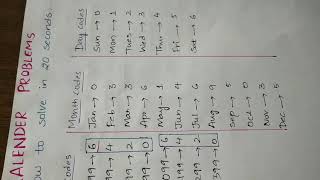 ALENDER PROBLEMS
ow to solve in 20 seconds.
codes
99 → 6
99 → 4
99 → 2
99 → 0
099 → 6
199 → 4
299 → 2
399 → 0
Month codes
Jan → 0
Feb → 3
Mar → 3
Apr → 6
May → 1
Jun → 4
Jul → 6
Aug →
Sep → 5
Oct → 0
Nov → 3
Dec → 5
Day codes
Sun → 0
Mon → 1
Tues → 2
Wed → 3
Thu → 4
Fri → 5
Sat → 6